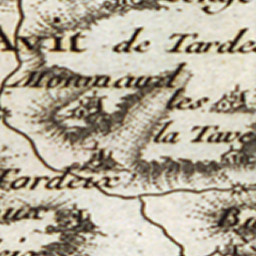 Avit de Tarde
Monmaud
les
la Tave
Cordeix
aux
Bu